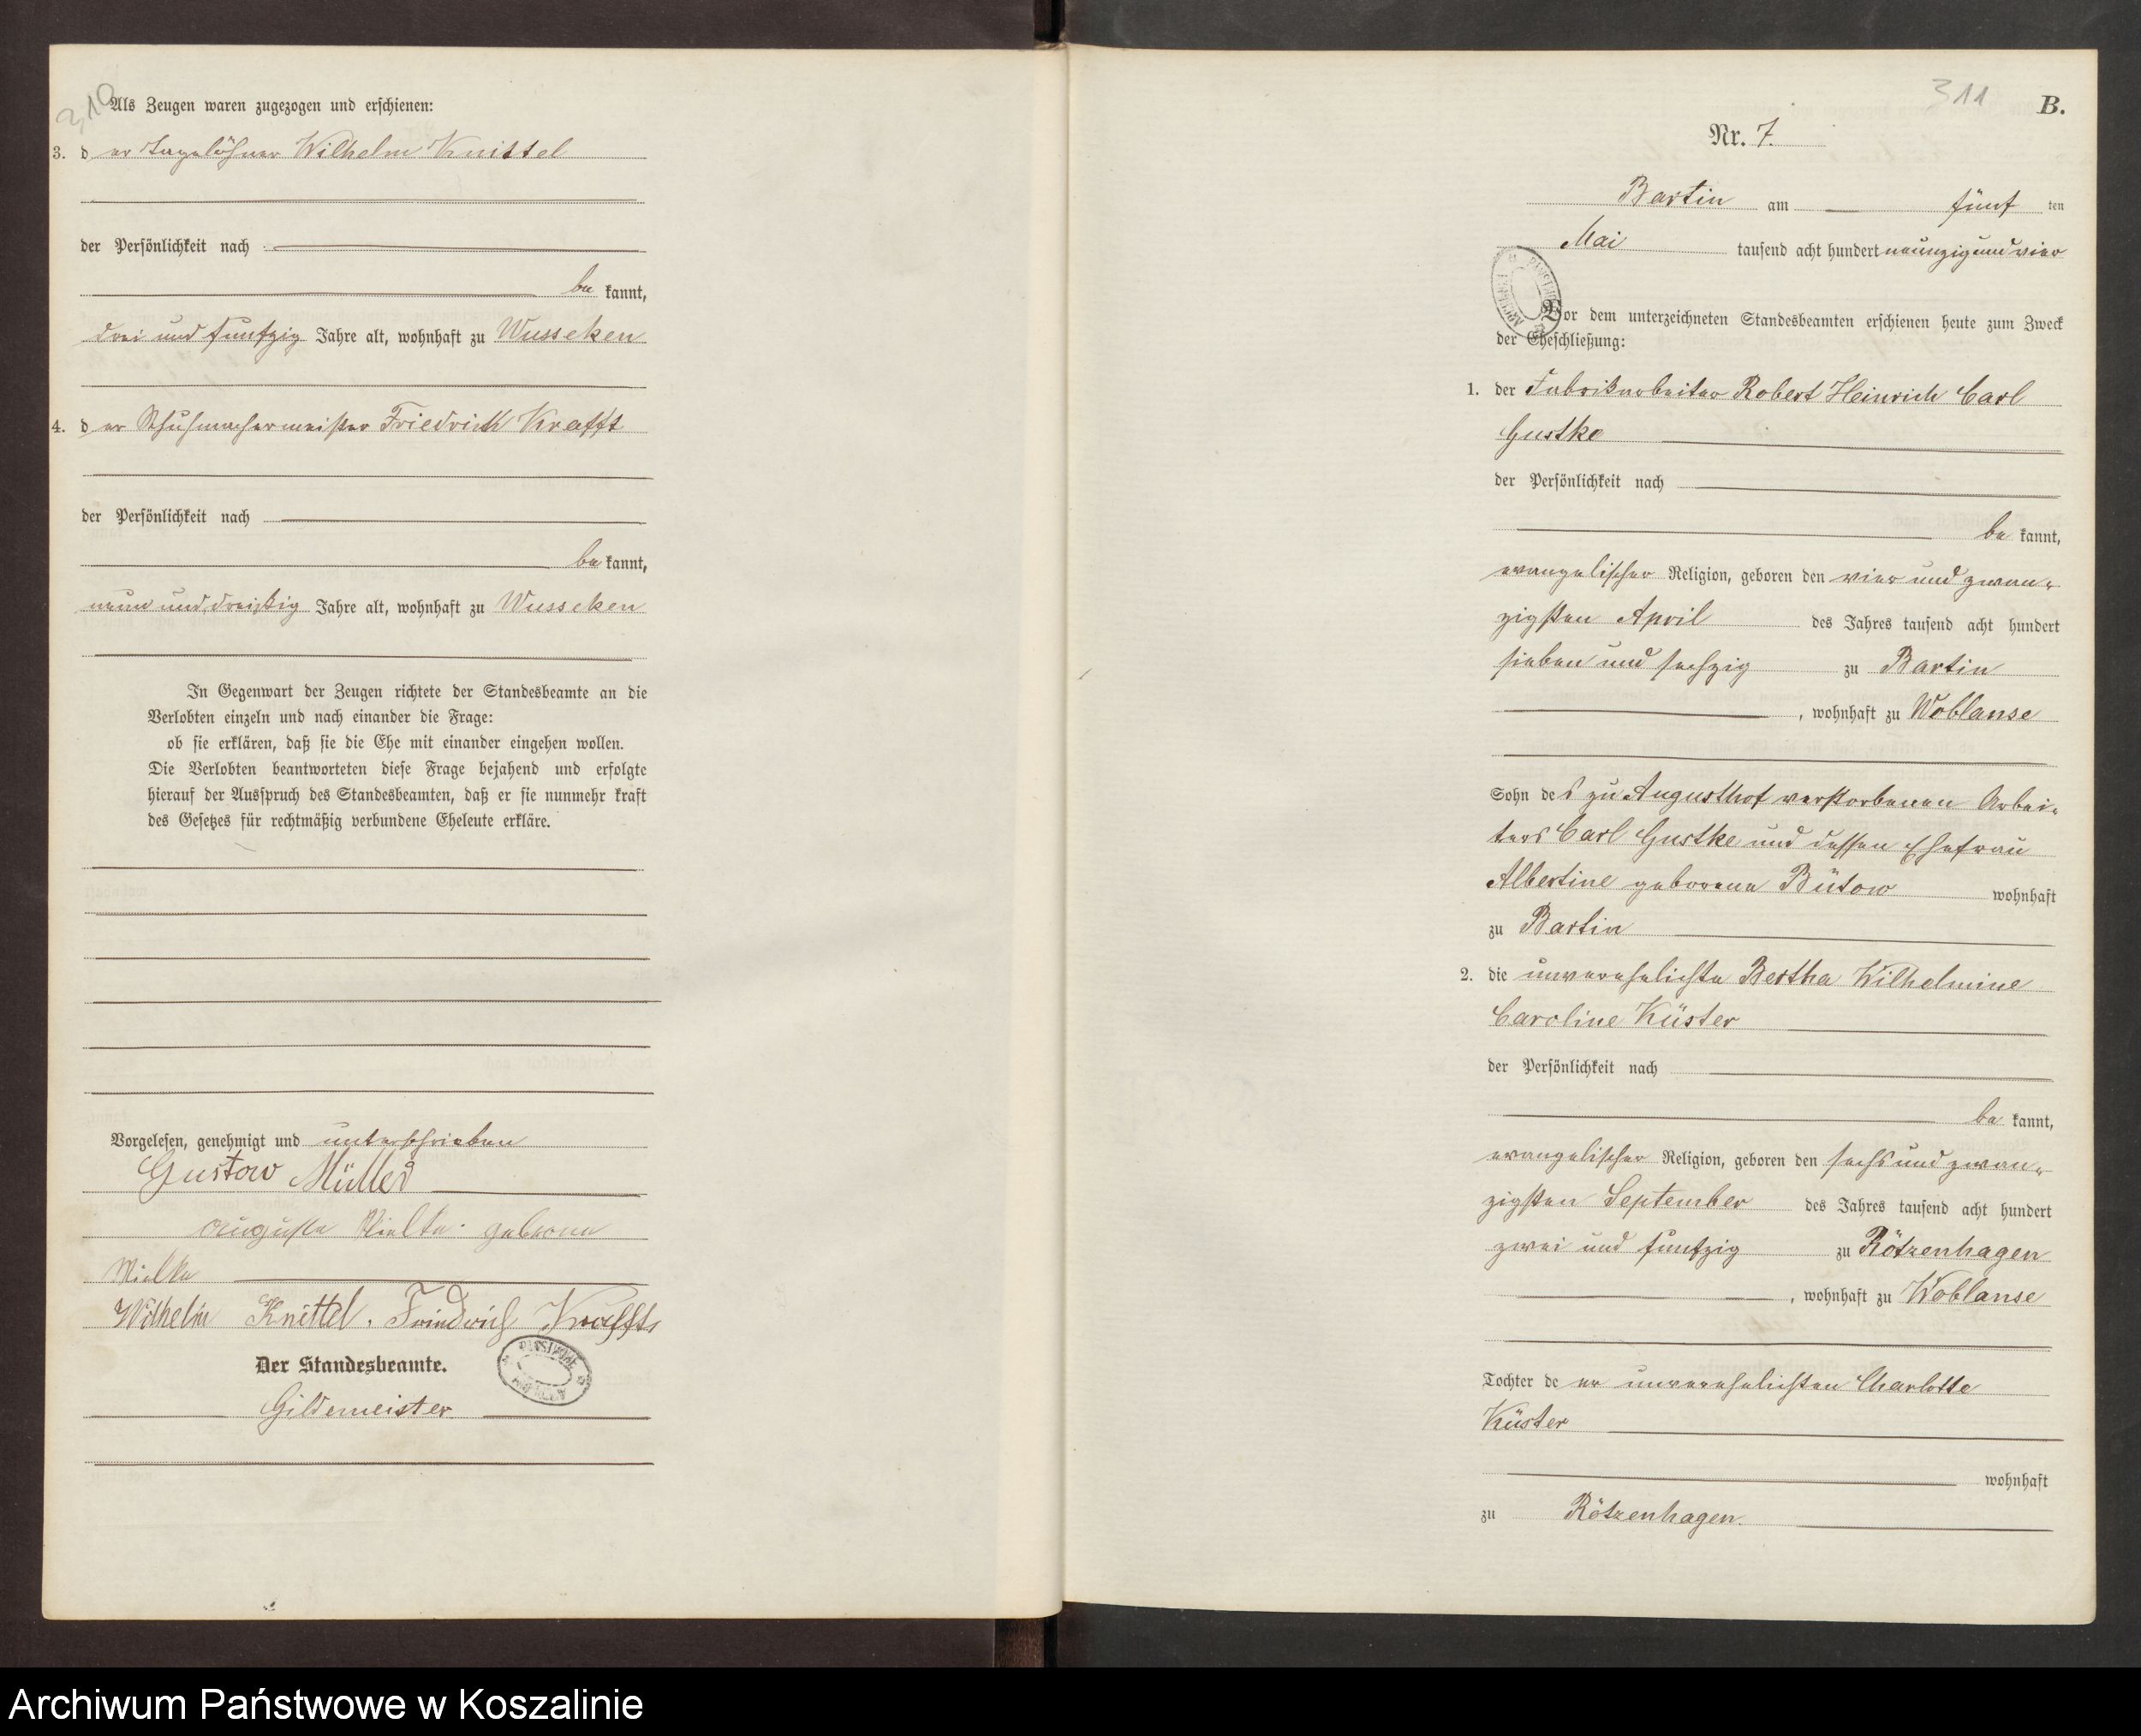 310
Als Zeugen waren zugezogen und erschienen:
3. d er Tagelöhner Wilhelm Knittel
der Persönlichkeit nach
be kannt,
drei und funfzig Jahre alt, wohnhaft zu Wusseken
4. d er Schuhmachermeister Friedrich Krafft
der Persönlichkeit nach
be kannt,
neun und dreißig Jahre alt, wohnhaft zu Wusseken
In Gegenwart der Zeugen richtete der Standesbeamte an die
Verlobten einzeln und nach einander die Frage:
ob sie erklären, daß sie die Ehe mit einander eingehen wollen.
Die Verlobten beantworteten diese Frage bejahend und erfolgte
hierauf der Ausspruch des Standesbeamten, daß er sie nunmehr kraft
des Gesetzes für rechtmäßig verbundene Eheleute erkläre.
Vorgelesen, genehmigt und unterschrieben
Gustow Müller
Auguste geborene
Mielke
Wilhelm Knittel. Friedrich Krafft
Der Standesbeamte.
Gildemeister
311
B.
Nr. 7.
Bartin am fünf ten
Mai tausend acht hundert neunzig und vier
Vor dem unterzeichneten Standesbeamten erschienen heute zum Zweck
der Eheschließung:
1. der Fabrikarbeiter Robert Heinrich Carl
Gustke
der Persönlichkeit nach
be kannt,
evangelischer Religion, geboren den vier und zwan-
zigsten April des Jahres tausend acht hundert
sieben und sechzig zu Bartin
, wohnhaft zu Woblanse
Sohn des zu Augusthof verstorbenen Arbei-
ters Carl Gustke und dessen Ehefrau
Albertine geborene Bütow wohnhaft
zu Bartin
2. die unverehelichte Bertha Wilhelmine
Caroline Küster
der Persönlichkeit nach
be kannt,
evangelischer Religion, geboren den sechs und zwan-
zigsten September des Jahres tausend acht hundert
zwei und funfzig zu Rötzenhagen
, wohnhaft zu Woblanse
Tochter de er unverehelichten Charlotte
Küster
wohnhaft
zu Rötzenhagen.
Archiwum Państwowe w Koszalinie